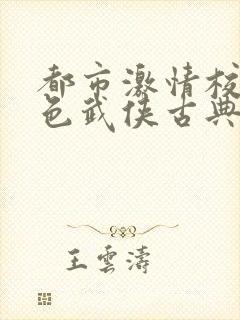 都市激情校
色武侠古典
王雲濤